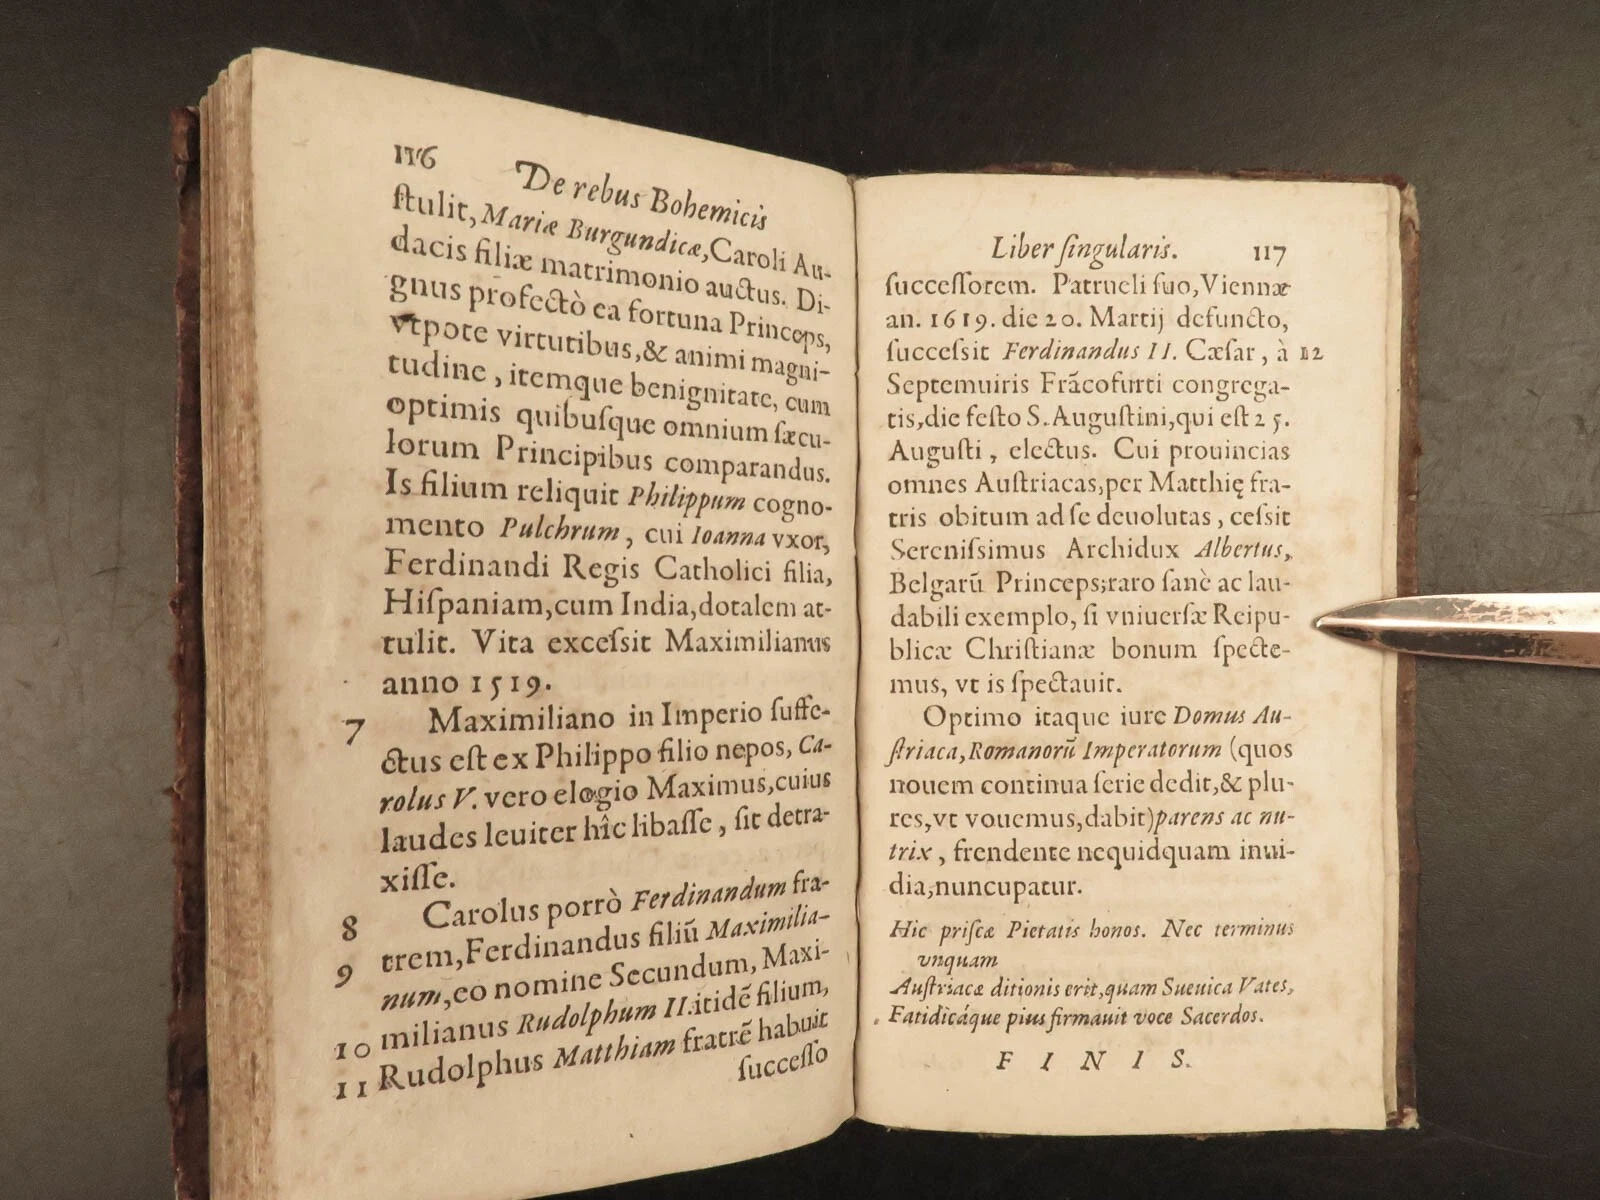 116
De rebus Bohemicis
ſtulit, Mariæ Burgundicæ, Caroli Au-
dacis filiæ matrimonio auctus. Di-
gnus profectò ea fortuna Princeps,
vtpote virtutibus, & animi magni-
tudine, itemque benignitate, cum
optimis quibuſque omnium ſæcu-
lorum Principibus comparandus.
Is filium reliquit Philippum cogno-
mento Pulchrum, cui Ioanna vxor,
Ferdinandi Regis Catholici filia,
Hiſpaniam, cum India, dotalem at-
tulit. Vita exceſsit Maximilianus
anno 1519.
7 Maximiliano in Imperio ſuffe-
ctus eſt ex Philippo filio nepos, Ca-
rolus V. vero elogio Maximus, cuius
laudes leuiter hîc libaſſe, ſit detra-
xiſſe.
8 Carolus porrò Ferdinandum fra-
9 trem, Ferdinandus filiũ Maximilia-
num, eo nomine Secundum, Maxi-
10 milianus Rudolphum II. itidẽ filium,
11 Rudolphus Matthiam fratrẽ habuit
ſucceſſo
Liber ſingularis. 117
ſucceſſorem. Patrueli ſuo, Viennæ
an. 1619. die 20. Martij defuncto,
ſucceſsit Ferdinandus II. Cæſar, à 12
Septemuiris Frãcofurti congrega-
tis, die feſto S. Auguſtini, qui eſt 25.
Auguſti, electus. Cui prouincias
omnes Auſtriacas, per Matthię fra-
tris obitum ad ſe deuolutas, ceſsit
Sereniſsimus Archidux Albertus,
Belgarũ Princeps; raro ſanè ac lau-
dabili exemplo, ſi vniuerſæ Reipu-
blicæ Chriſtianæ bonum ſpecte-
mus, vt is ſpectauit.
Optimo itaque iure Domus Au-
ſtriaca, Romanorũ Imperatorum (quos
nouem continua ſerie dedit, & plu-
res, vt vouemus, dabit) parens ac nu-
trix, frendente nequidquam inui-
dia, nuncupatur.
Hic priſcæ Pietatis honos. Nec terminus
vnquam
Auſtriacæ ditionis erit, quam Sueuica Vates,
Fatidicáque pius firmauit voce Sacerdos.
FINIS.